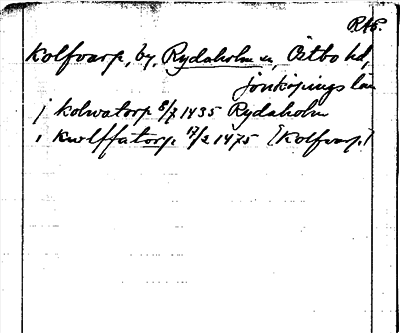 RAP.
Kolfvarp, by, Rydaholm sn, Östbo hd,
Jönköpings län
j kolwatorp 8/7 1435 Rydaholm
i kwlffatorp 17/2 1475 [Kolfvarp]